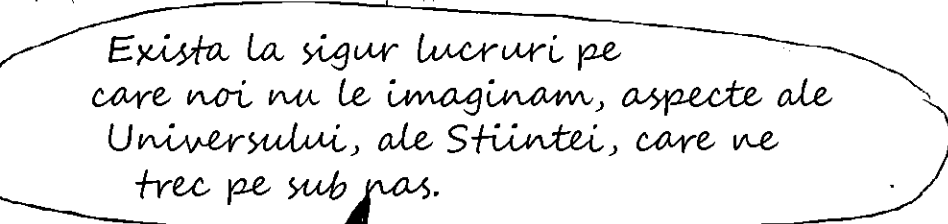 Exista la sigur lucruri pe
care noi nu le imaginam, aspecte ale
Universului, ale Stiintei, care ne
trec pe sub nas.